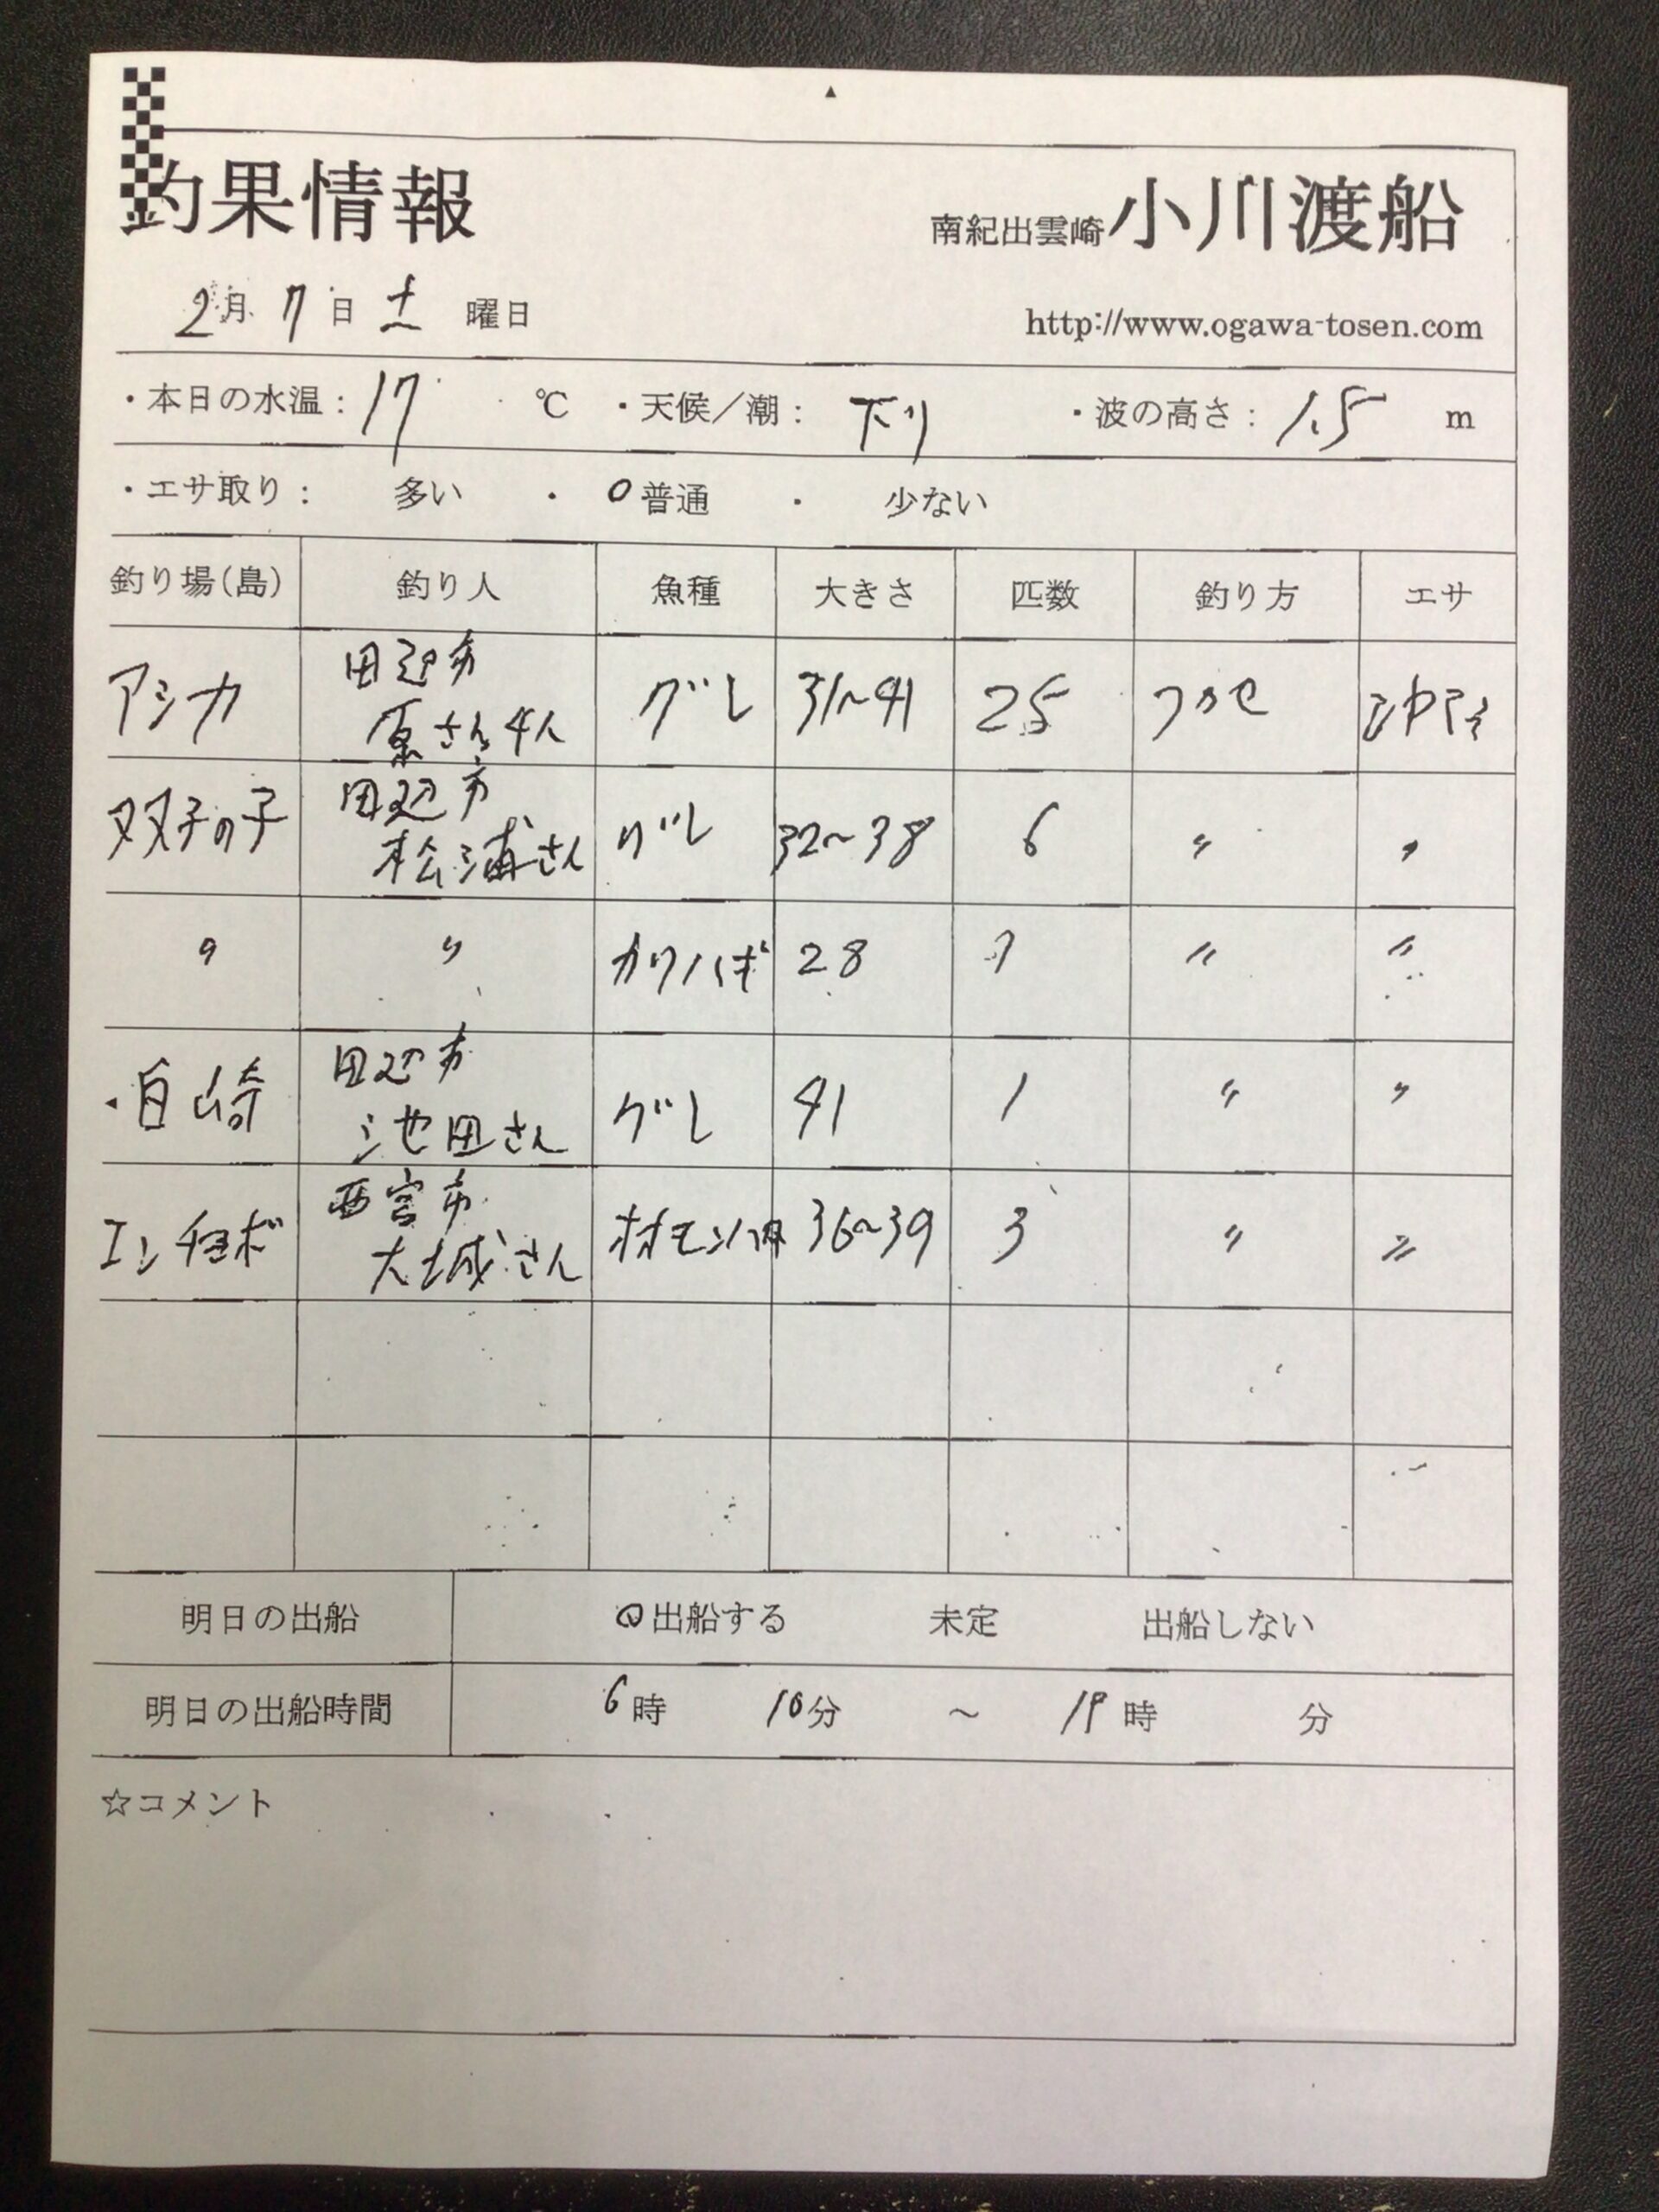 釣果情報
南紀出雲崎 小川渡船
2月 7日 土 曜日
http://www.ogawa-tosen.com
・本日の水温: 17 ℃ ・天候/潮: 下り ・波の高さ: 1.5 m
・エサ取り: 多い ・ ○普通 ・ 少ない
釣り場(島) 釣り人 魚種 大きさ 匹数 釣り方 エサ
アシカ 田辺市 原さん4人 グレ 31~41 25 フカセ
双子の子 田辺市 松浦さん グレ 32~38 6 〃 〃
〃 〃 カワハギ 28 〃 〃
田辺市 池田さん グレ 41 1 〃 〃
エンチョボ 西宮市 大城さん 36~39 3 〃 〃
明日の出船 ○出船する 未定 出船しない
明日の出船時間 6時 10分 ~ 時 分
☆コメント